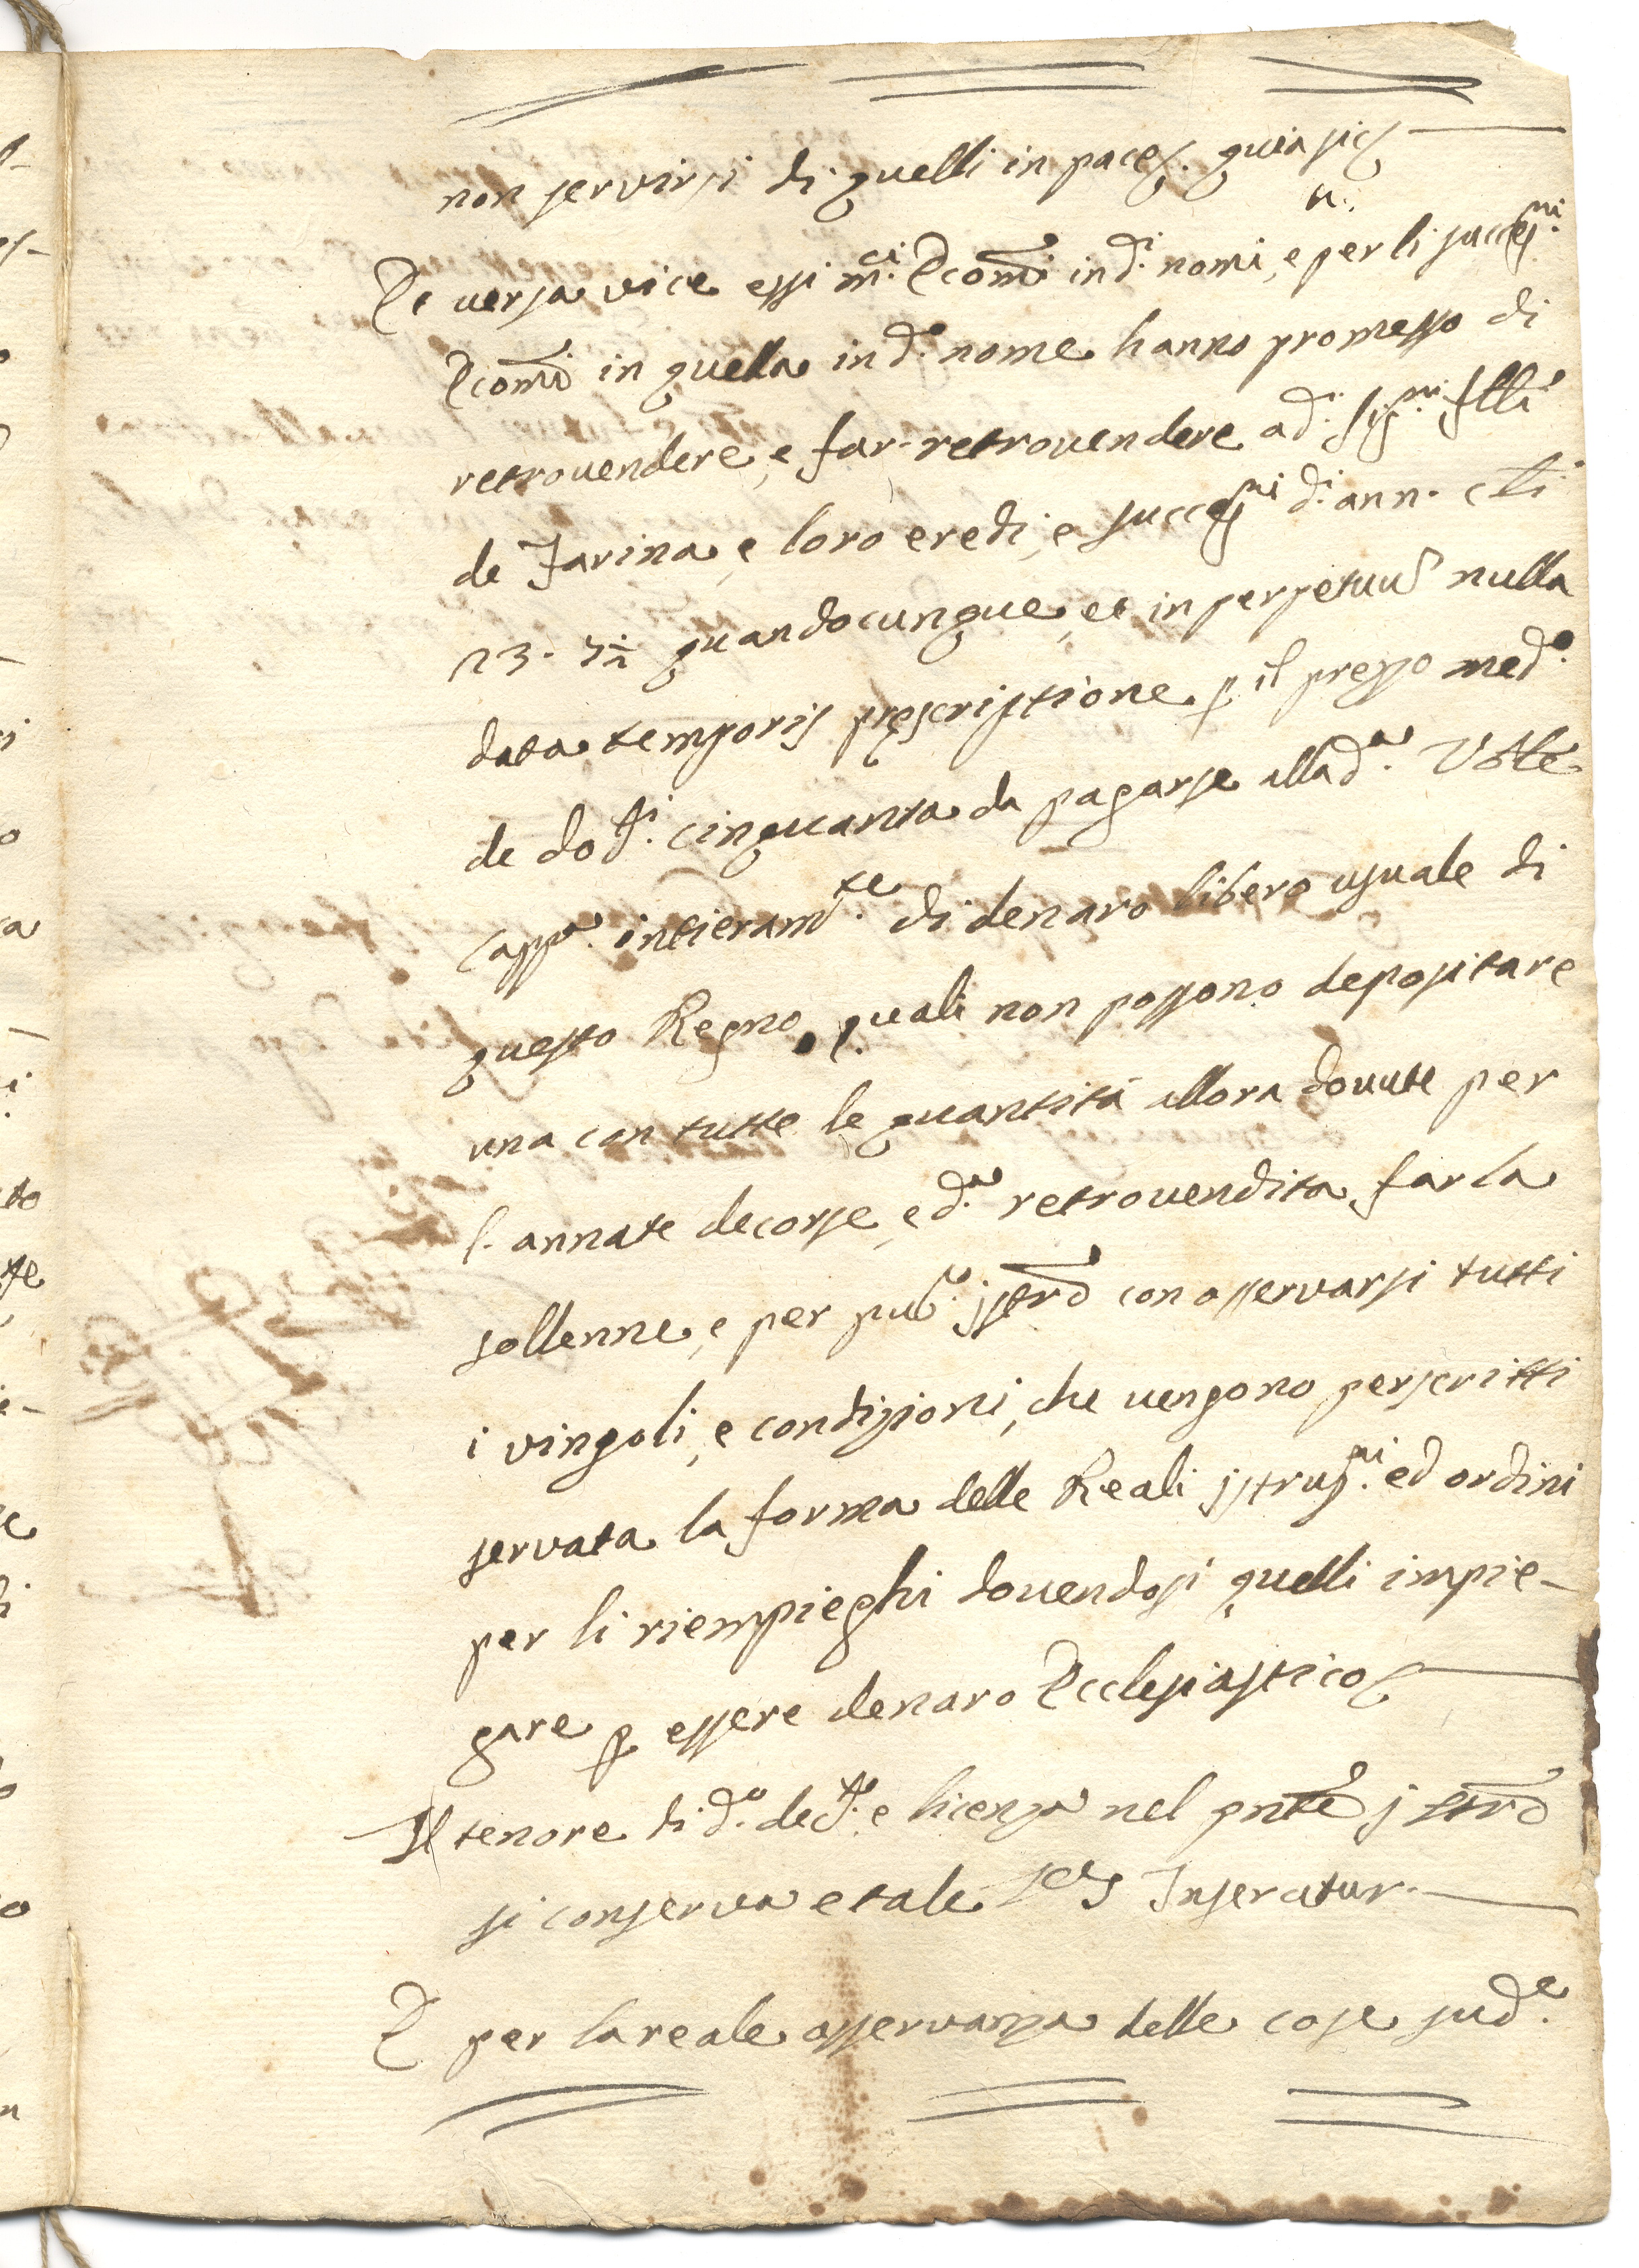 non servirsi di quelli in pace. quia sic
Et versa vice essi m.ci Econmi in d.i nomi, e per li success.ri
Econmi in quella in d.o nome hanno promesso di
retrovendere, e far retrovendere a d.i sig.ri flli
de Farina, e loro eredi, e success.ri d.i ann. cti
23. 3½ quandocunque, et in perpetuum nulla
data temporis prescriptione p il prezzo med.o
de doti. cinquanta da pagarse alla d.a Vble
Capp.a intieram.te di denaro libero usuale di
questo Regno, quali non possono depositare
una con tutte le quantità allora dovute per
l'annate decorse, e d.a retrovendita farla
sollenne, e per pub.o istro con osservarsi tutti
i vingoli, e condizioni, che vengono perscritti
servata la forma delle Reali istruz.ni ed ordini
per li riempieghi dovendosi quelli impie-
gare p essere denaro Ecclesiastico
Il tenore di d.o de.to e licenza nel pnte istro
si conserva e tale Inseratur.
E per la reale osservanza delle cose sud.e